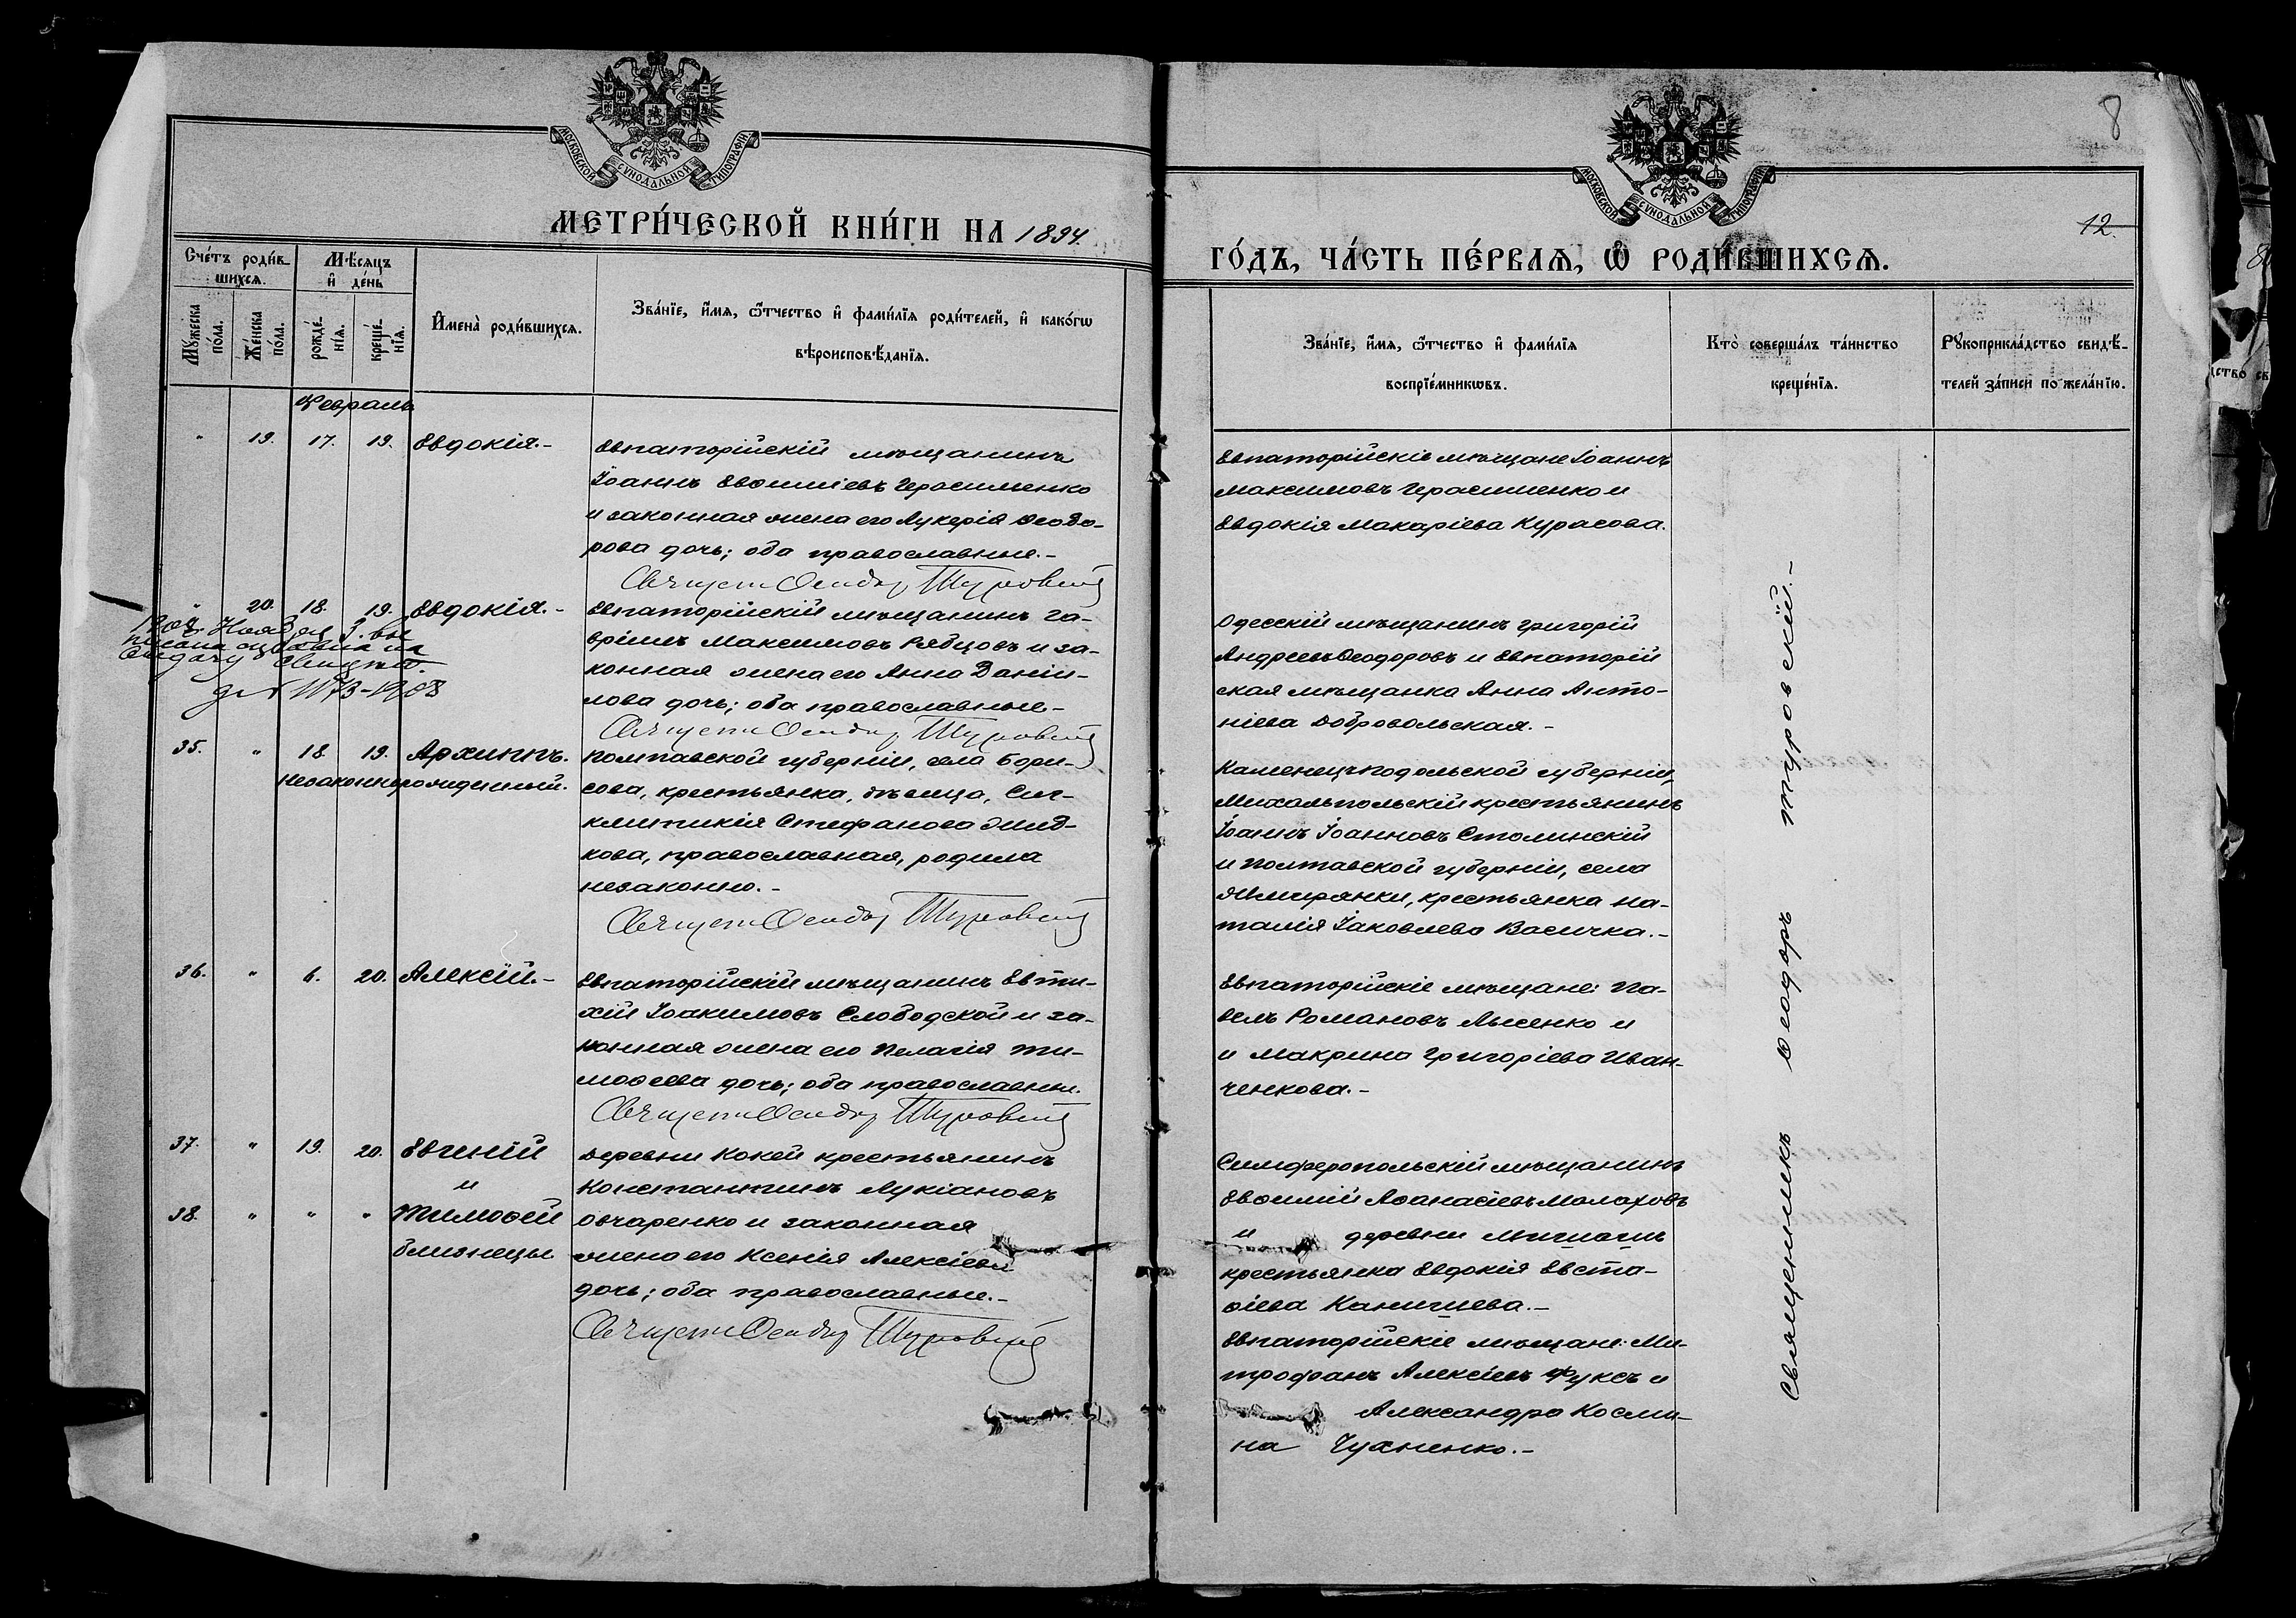 МОСКОВСКОЙ СУНОДАЛЬНОЙ ТИПОГРАФІИ
МЕТРИ́ЧЕСКОЙ КНИ́ГИ НА 1894.
Сче́тъ роди́в-
шихся.
Мѣ́сяцъ
и҆ де́нь
Мꙋ́жеска
по́ла.
Же́нска
по́ла.
рожде́-
нїѧ.
креще́-
нїѧ.
И҆мена̀ роди́вшихсѧ.
Зва́нїе, и҆́мѧ, ѻ҆́тчество и҆ фами́лїѧ роди́телей, и҆ како́гѡ
вѣроисповѣ́данїѧ.
Февраль
" 19. 17. 19. Евдокія.-
Евпаторійскій мѣщанинъ
Іоаннъ Евѳиміевъ Герасименко
и законная жена его Лукерія Ѳеодо-
рова дочь; оба православные.-
Священ Ѳеодор Туровскій
" 20. 18. 19. Евдокія.-
Евпаторійскій мѣщанинъ Га-
вріилъ Максимовъ Рябцовъ и за-
конная жена его Анна Даніи-
лова дочь; оба православные.-
Священ Ѳеодор Туровскій
1908 Ноября 3. вы
писана
1173-1908
35. " 18. 19. Архиппъ.
незаконнорожденный.
Полтавской губерніи, села Бори-
сова, крестьянка, дѣвица, Син-
клитикія Стефанова Жид-
кова, православная, родила
незаконно.-
Священ Ѳеодор Туровскій
36. " 6. 20. Алексій.-
Евпаторійскій мѣщанинъ Евти-
хій Іоакимовъ Слободской и за-
конная жена его Пелагія Ти-
моѳеева дочь; оба православны.
Священ Ѳеодор Туровскій
37. " 19. 20. Евгеній
и
38. " " " Тимоѳей
близнецы.
Деревни Кокей крестьянинъ
Константинъ Лукіановъ
Овчаренко и законная
жена его Ксенія Алексіева
дочь; оба православные.-
Священ Ѳеодор Туровскій
8
12.
МОСКОВСКОЙ СУНОДАЛЬНОЙ ТИПОГРАФІИ
ГО́ДЪ, ЧА́СТЬ ПЕ́РВАѦ, Ѽ РОДИ́ВШИХСѦ.
Зва́нїе, и҆́мѧ, ѻ҆́тчество и҆ фами́лїѧ
воспрїе́мникѡвъ.
Кто̀ соверша́лъ та́инство
креще́нїѧ.
Рꙋкоприкла́дство свидѣ́-
телей за́писи по жела́нїю.
Евпаторійскіе мѣщане Іоаннъ
Максимовъ Герасименко и
Евдокія Макаріева Курасова.
Одесскій мѣщанинъ Григорій
Андреевъ Ѳеодоровъ и Евпаторій
ская мѣщанка Анна Анто-
ніева Добровольская.-
Каменецъ-Подольской губерніи,
Михальпольскій крестьянинъ
Іоаннъ Іоанновъ Столинскій
и Полтавской губерніи, села
крестьянка На-
талія Іаковлева Васичка.-
Евпаторійскіе мѣщане: Па-
велъ Романовъ Лысенко и
и Макрина Григоріева Иван-
ченкова.-
Симферопольскій мѣщанинъ
Евѳимій Аѳанасіевъ Малаховъ
и деревни
крестьянка Евдокія Евста-
ѳіева Канишева.-
Евпаторійскіе мѣщане: Ми-
трофанъ Алексіевъ Фуксъ и
Александра Косми-
на Чухненко.-
Священникъ Ѳеодоръ Туровскій.-